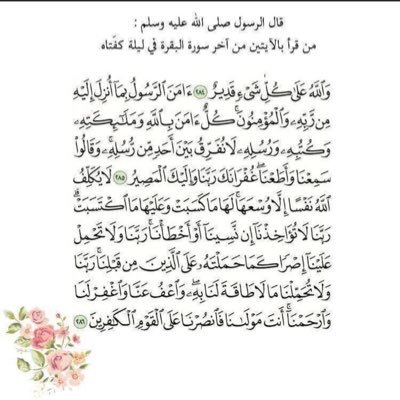 قال الرسول صلى الله عليه وسلم :
من قرأ بالآيتين من آخر سورة البقرة في ليلة كفتاه
وَاللَّهُ عَلَىٰ كُلِّ شَيْءٍ قَدِيرٌ ٢٨٤ ءَامَنَ الرَّسُولُ بِمَا أُنزِلَ إِلَيْهِ
مِن رَّبِّهِ وَالْمُؤْمِنُونَ كُلٌّ ءَامَنَ بِاللَّهِ وَمَلَائِكَتِهِ
وَكُتُبِهِ وَرُسُلِهِ لَا نُفَرِّقُ بَيْنَ أَحَدٍ مِّن رُّسُلِهِ وَقَالُوا
سَمِعْنَا وَأَطَعْنَا غُفْرَانَكَ رَبَّنَا وَإِلَيْكَ الْمَصِيرُ ٢٨٥ لَا يُكَلِّفُ
اللَّهُ نَفْسًا إِلَّا وُسْعَهَا لَهَا مَا كَسَبَتْ وَعَلَيْهَا مَا اكْتَسَبَتْ
رَبَّنَا لَا تُؤَاخِذْنَا إِن نَّسِينَا أَوْ أَخْطَأْنَا رَبَّنَا وَلَا تَحْمِلْ
عَلَيْنَا إِصْرًا كَمَا حَمَلْتَهُ عَلَى الَّذِينَ مِن قَبْلِنَا رَبَّنَا
وَلَا تُحَمِّلْنَا مَا لَا طَاقَةَ لَنَا بِهِ وَاعْفُ عَنَّا وَاغْفِرْ لَنَا
وَارْحَمْنَا أَنتَ مَوْلَانَا فَانصُرْنَا عَلَى الْقَوْمِ الْكَافِرِينَ ٢٨٦